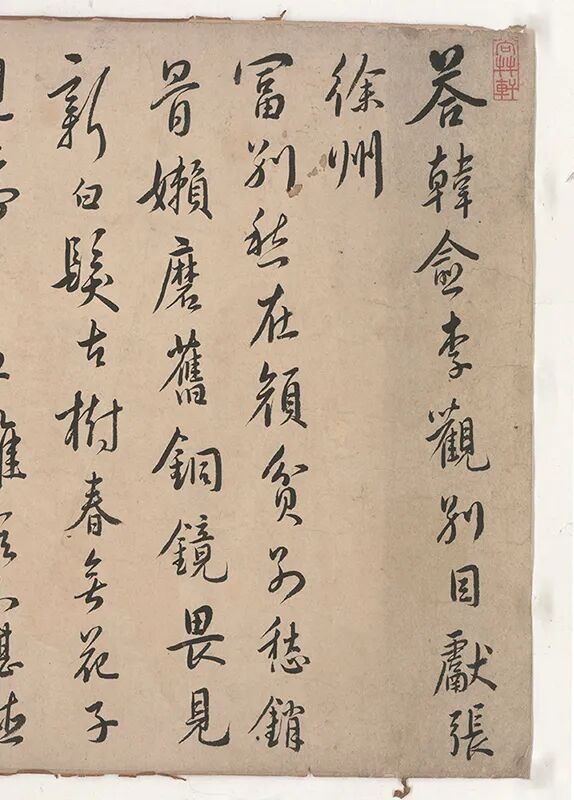 荅韓愈李觀別因獻張
徐州
冨別愁在顔貧別愁銷
骨嬾磨舊銅鏡畏見
新白髮古樹春無花子